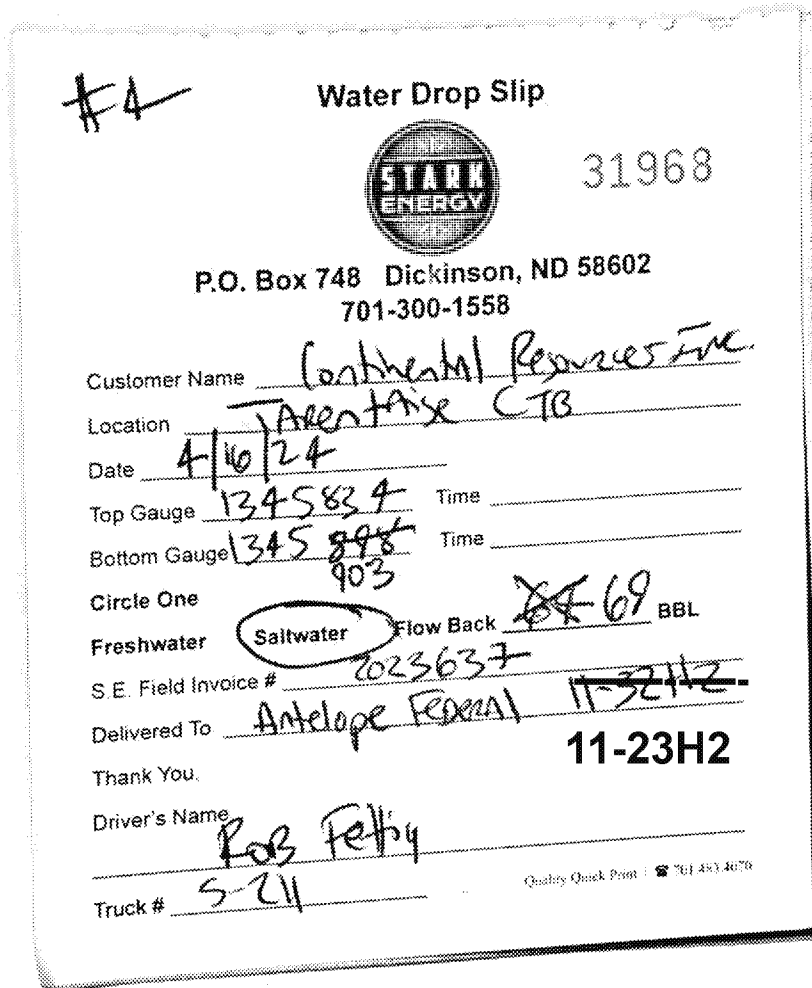 #4
Water Drop Slip
STARK
ENERGY
31968
P.O. Box 748 Dickinson, ND 58602
701-300-1558
Customer Name Continental Resources Inc.
Location Tarentaise CTB
Date 4/16/24
Top Gauge 1345834 Time
Bottom Gauge 1345 898 Time
903
Circle One
Freshwater Saltwater Flow Back 64 69 BBL
S.E. Field Invoice # 2023637
Delivered To Antelope Federal 11-32H2
11-23H2
Thank You.
Driver's Name
Rob Fettig
Truck # S-211
Quality Quick Print | ☎ 701.483.4670